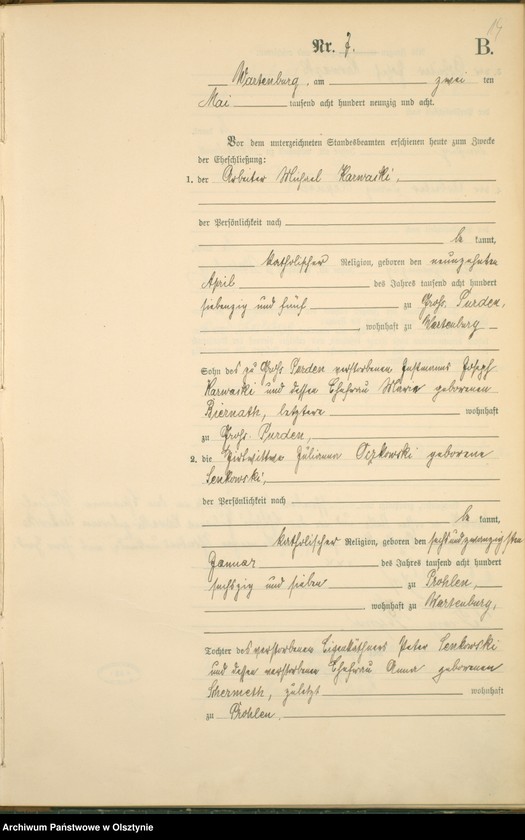 14
Nr. 7. B.
Wartenburg, am zwei ten
Mai tausend acht hundert neunzig und acht.
Vor dem unterzeichneten Standesbeamten erschienen heute zum Zwecke
der Eheschließung:
1. der Arbeiter Michael Karwaski,
der Persönlichkeit nach
be kannt,
katholischer Religion, geboren den neunzehnten
April des Jahres tausend acht hundert
siebenzig und fünf zu Groß Purden,
, wohnhaft zu Wartenburg
Sohn des zu Groß Purden verstorbenen Instmanns Joseph
Karwaski und dessen Ehefrau Maria geborenen
Biernath, letztere wohnhaft
zu Groß Purden,
2. die Julianna geborene
Senkowski,
der Persönlichkeit nach
be kannt,
katholischer Religion, geboren den sechsundzwanzigsten
Januar des Jahres tausend acht hundert
sechszig und sieben zu Prohlen,
wohnhaft zu Wartenburg,
Tochter des verstorbenen Eigenkäthners Peter Senkowski
und dessen verstorbener Ehefrau Anna geborenen
Schermeth, zuletzt wohnhaft
zu Prohlen.
Archiwum Państwowe w Olsztynie